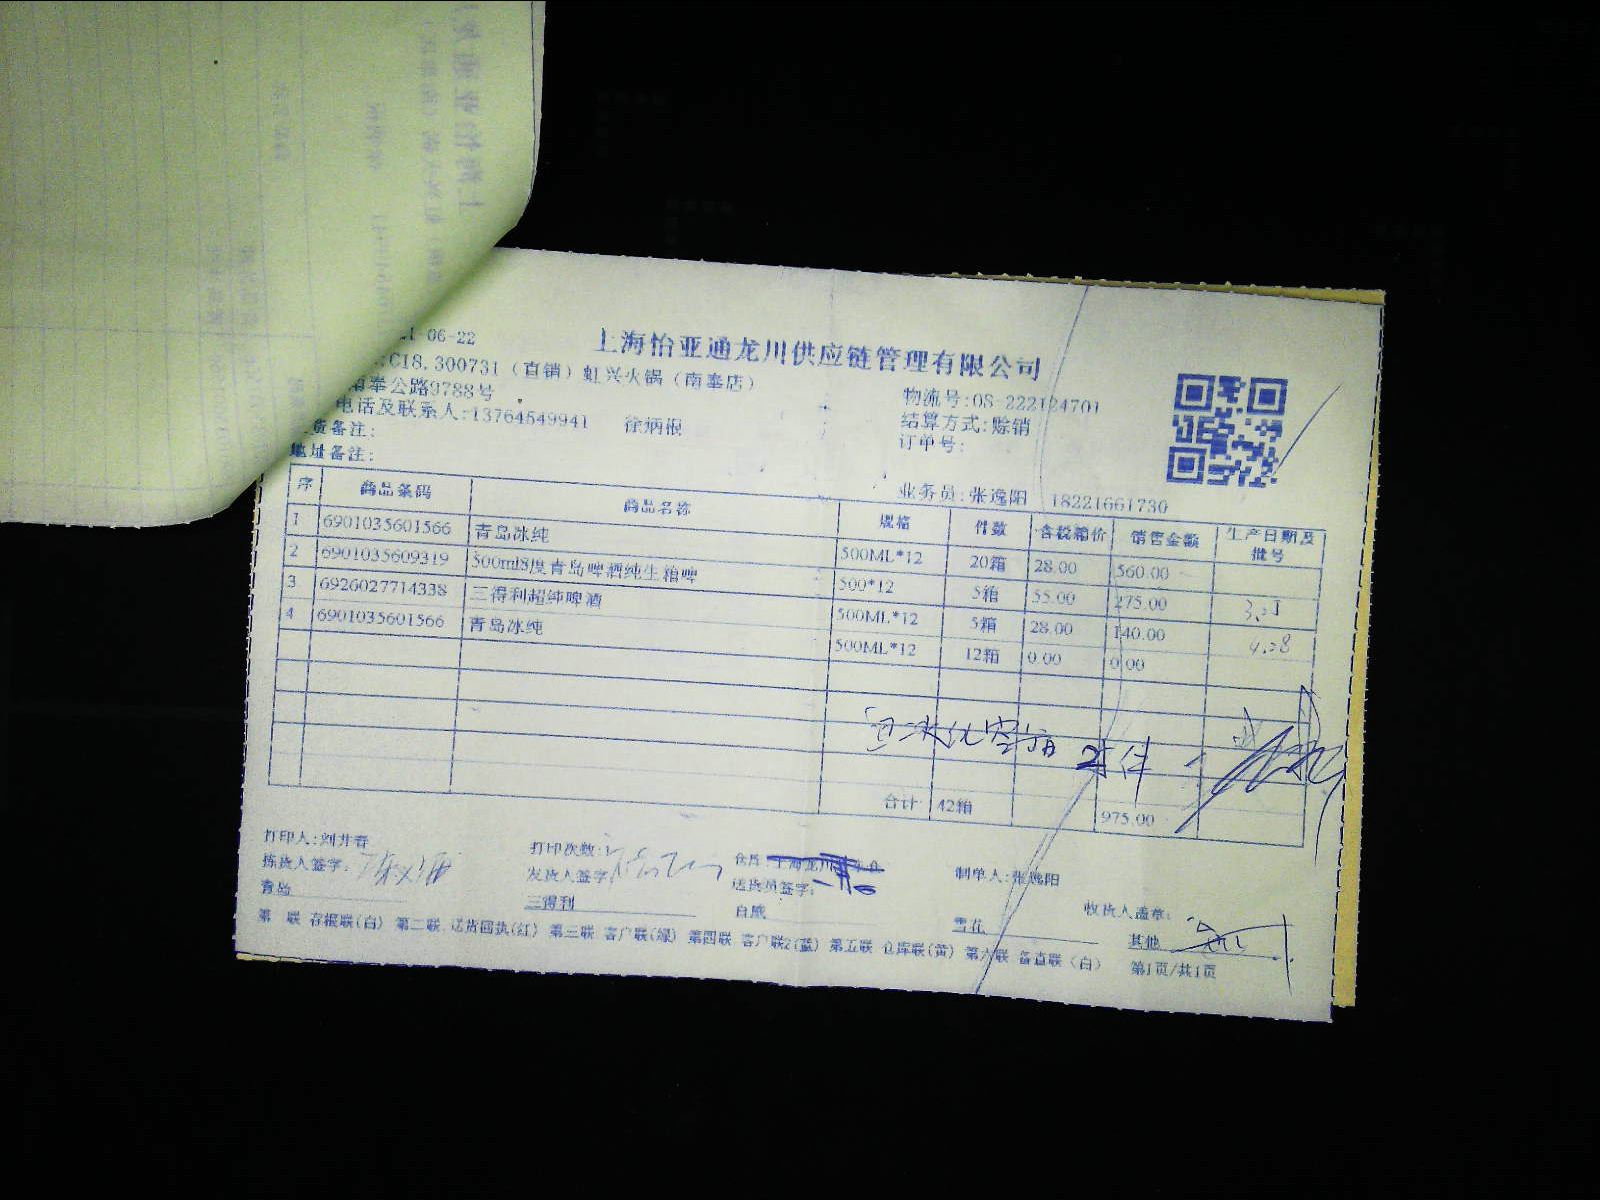 上海怡亚通龙川供应链管理有限公司
1-06-22
:C18.300731（直销）虹兴火锅（南奉店）
南奉公路9788号
物流号:OS-222124701
电话及联系人:13764549941 徐炳根
结算方式:赊销
货备注:
订单号:
地址备注:
业务员:张逸阳 18221661730
序 商品条码 商品名称 规格 件数 含税箱价 销售金额 生产日期及批号
1 6901035601566 青岛冰纯 500ML*12 20箱 28.00 560.00
2 6901035609319 500ml8度青岛啤酒纯生箱啤 500*12 5箱 55.00 275.00
3 6926027714338 三得利超纯啤酒 500ML*12 5箱 28.00 140.00
4 6901035601566 青岛冰纯 500ML*12 12箱 0.00 0.00
合计 42箱 975.00
打印人:刘井春 打印次数:1 仓库: 制单人:张逸阳
拣货人签字: 发货人签字: 送货员签字: 收货人盖章:
青岛 三得利 百威 雪花 其他
第 联 存根联(白) 第二联 送货回执(红) 第三联 客户联(绿) 第四联 客户联2(蓝) 第五联 仓库联(黄) 第六联 备查联(白) 第1页/共1页